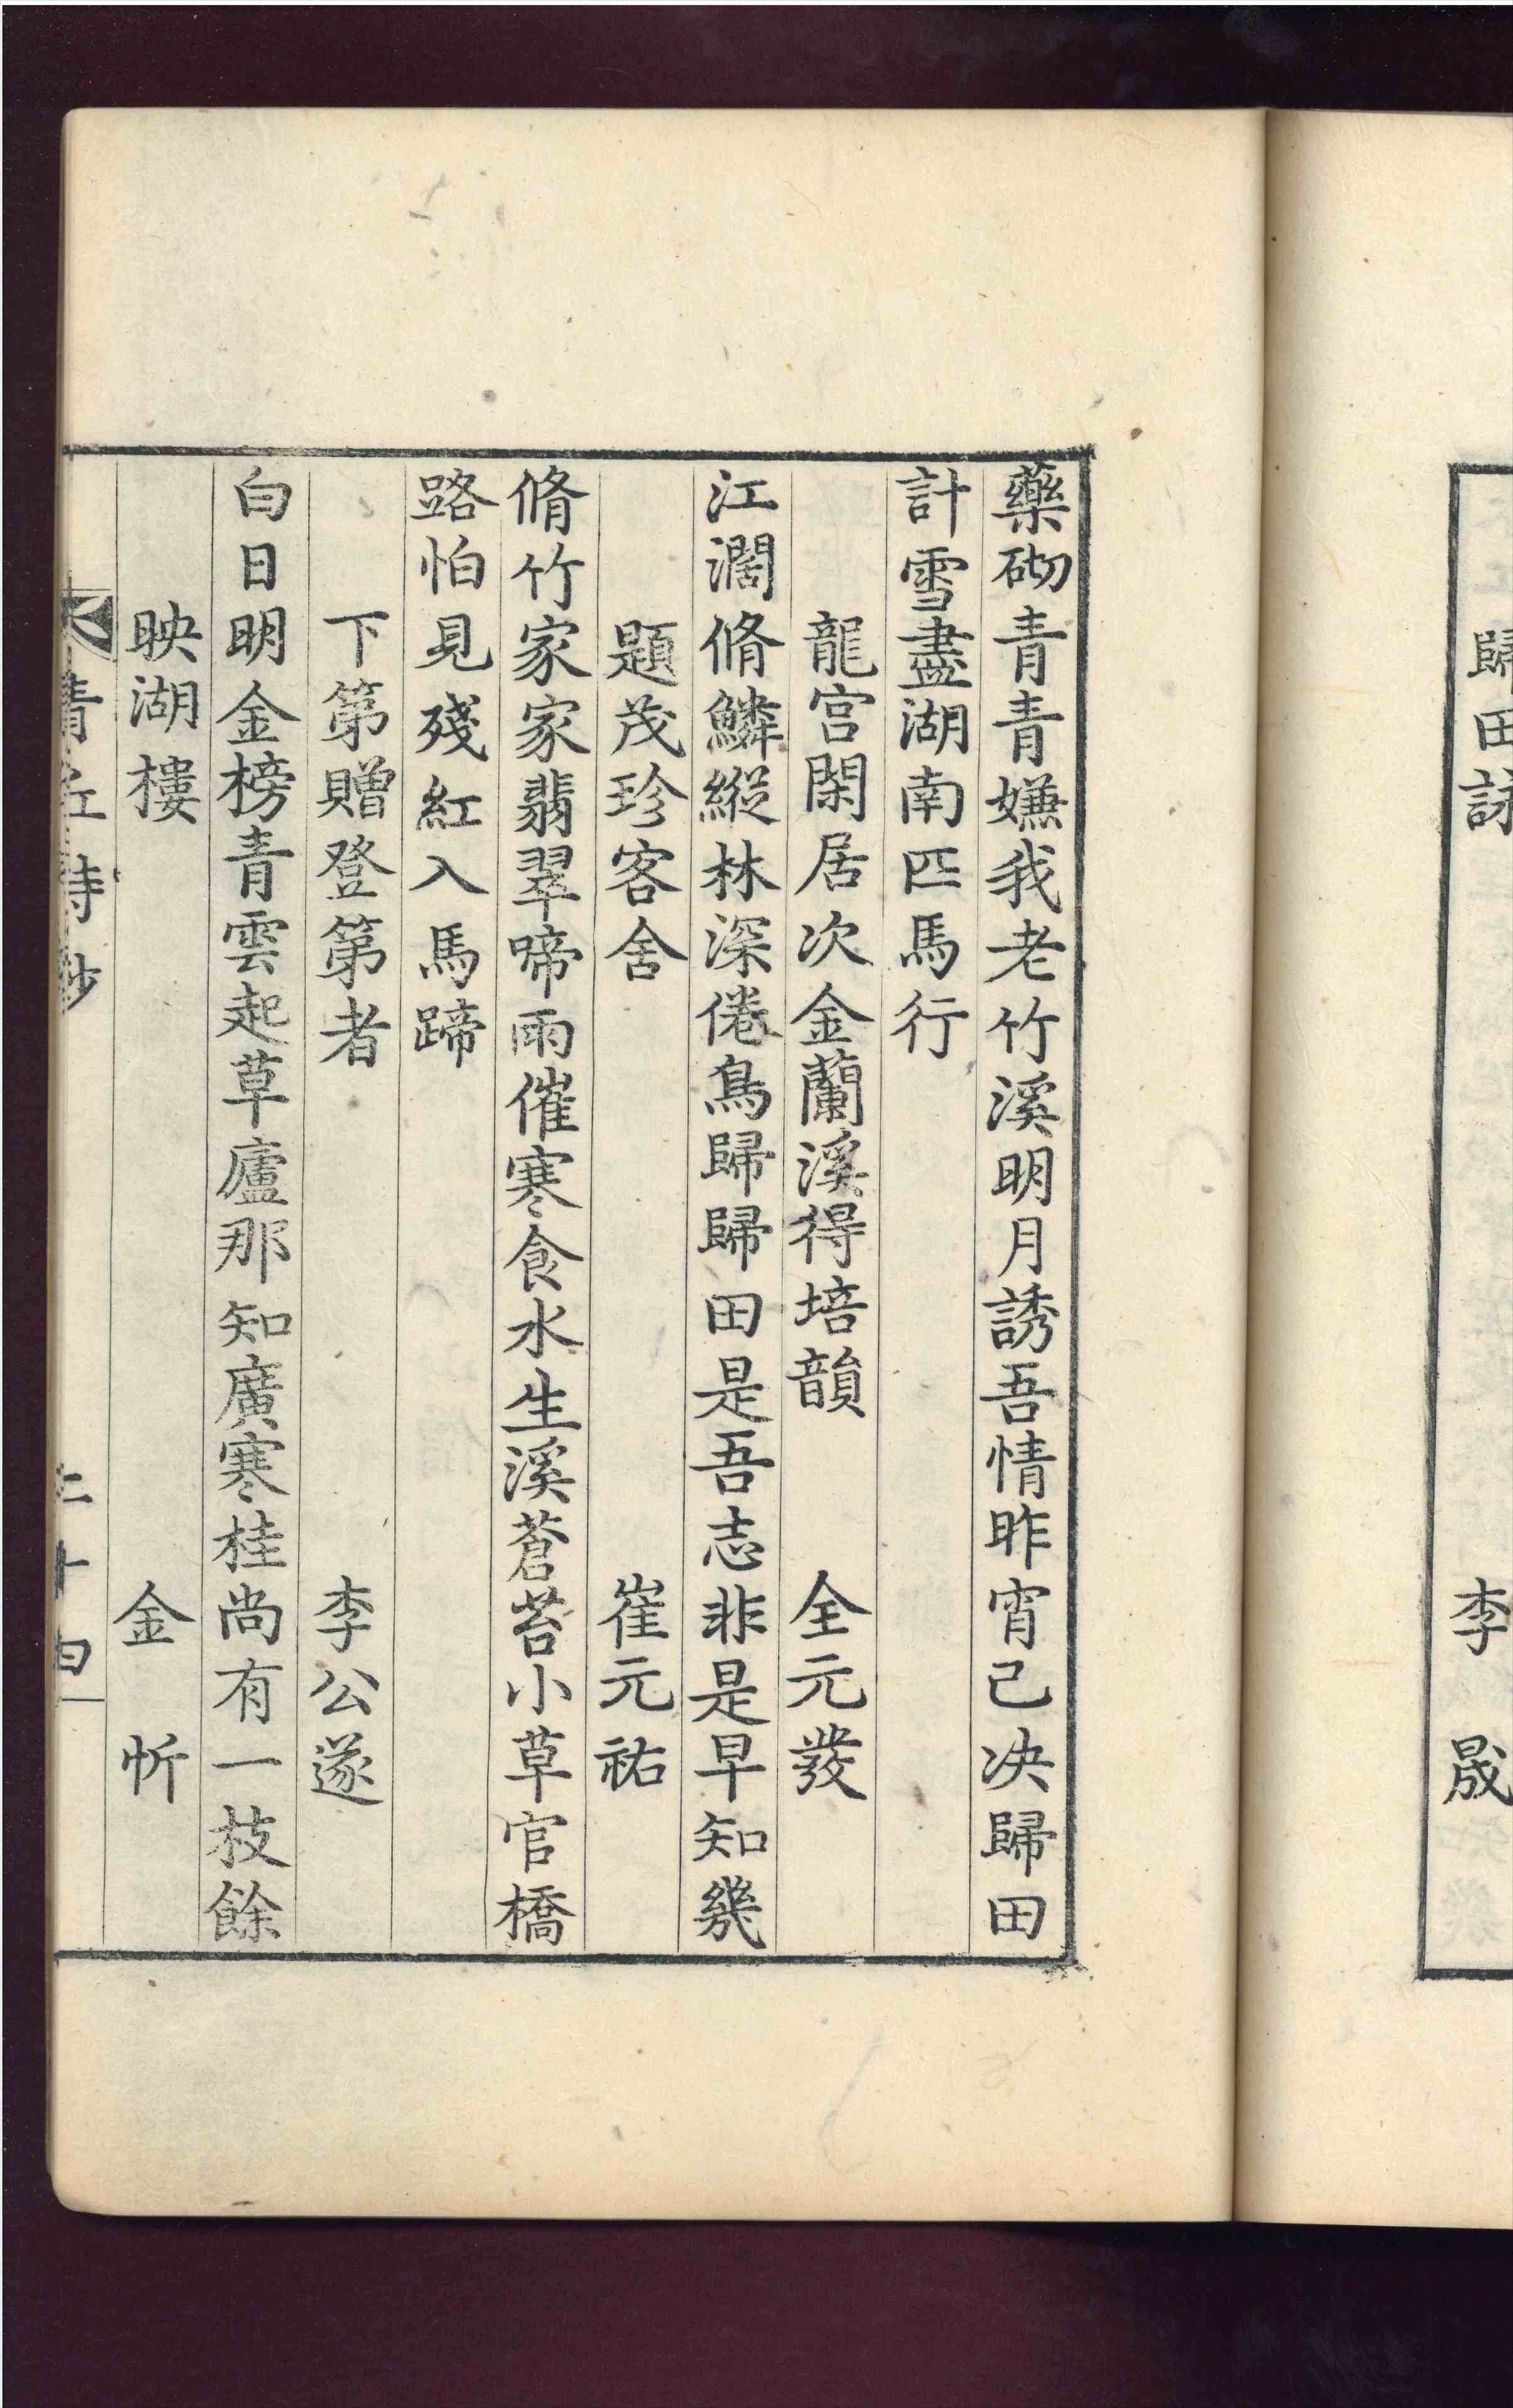 歸田詠 李晟
藥砌青青嫌我老竹溪明月誘吾情昨宵已决歸田
計雪盡湖南匹馬行
龍宮閑居次金蘭溪得培韻 全元發
江濶脩鱗縱林深倦鳥歸歸田是吾志非是早知幾
題茂珍客舍 崔元祐
脩竹家家翡翠啼雨催寒食水生溪蒼苔小草官橋
路怕見殘紅入馬蹄
下第贈登第者 李公遂
白日明金榜青雲起草廬那知廣寒桂尚有一枝餘
映湖樓 金忻
青丘詩鈔